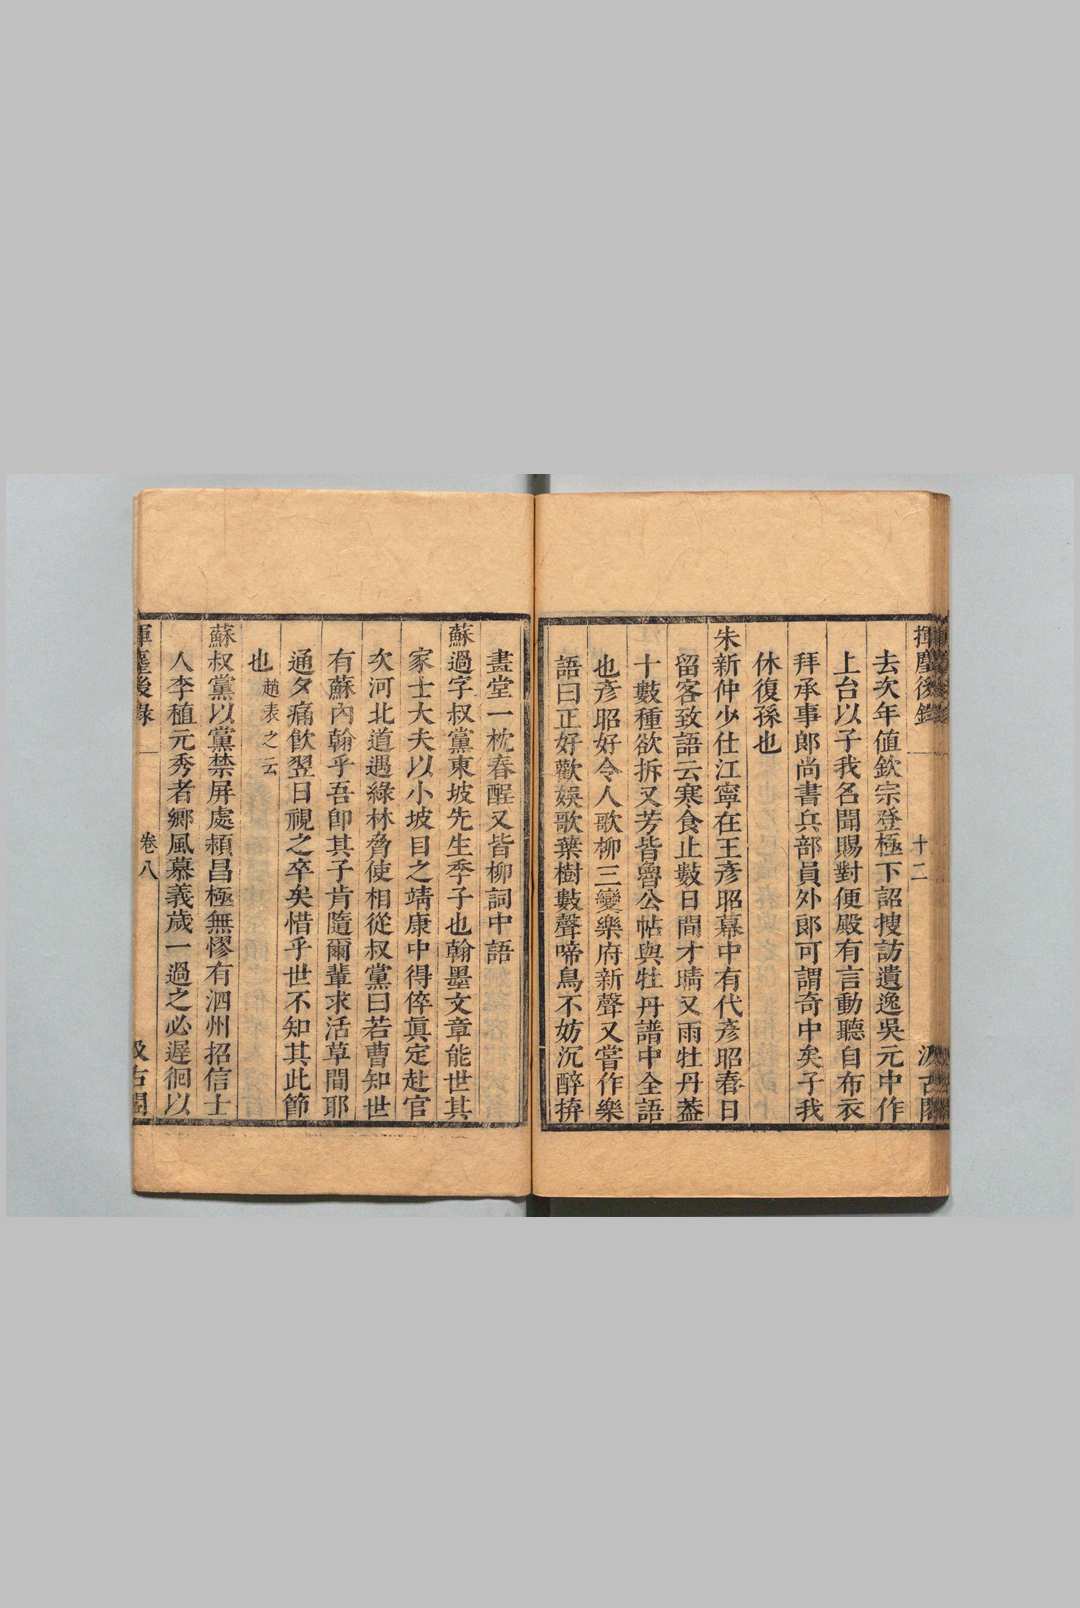 揮麈後錄
十二
汲古閣
去次年值欽宗登極下詔搜訪遺逸吳元中作
上台以子我名聞賜對便殿有言動聽自布衣
拜承事郎尚書兵部員外郎可謂奇中矣子我
休復孫也
朱新仲少仕江寧在王彥昭幕中有代彥昭春日
留客致語云寒食止數日間才晴又雨牡丹葢
十數種欲拆又芳皆魯公帖與牡丹譜中全語
也彥昭好令人歌柳三變樂府新聲又嘗作樂
語曰正好歡娛歌葉樹數聲啼鳥不妨沉醉拚
畫堂一枕春酲又皆柳詞中語
蘇過字叔黨東坡先生季子也翰墨文章能世其
家士大夫以小坡目之靖康中得倅眞定赴官
次河北道遇綠林脅使相從叔黨曰若曹知世
有蘇內翰乎吾卽其子肯隨爾輩求活草間耶
通夕痛飲翌日視之卒矣惜乎世不知其此節
也趙表之云
蘇叔黨以黨禁屏處頴昌極無憀有泗州招信士
人李稙元秀者鄉風慕義歲一過之必遲徊以
揮麈後錄
卷八
汲古閣